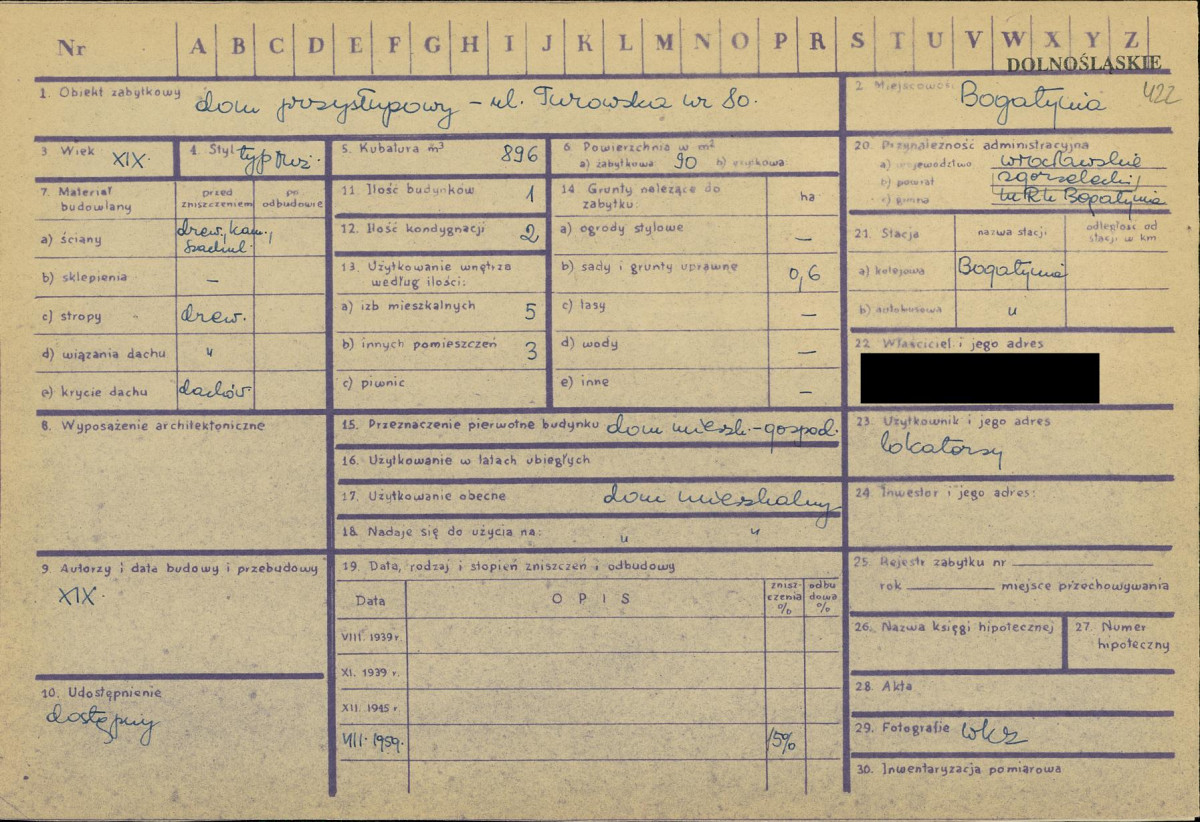 Nr A B C D E F G H I J K L M N O P R S T U V W X Y Z
DOLNOŚLĄSKIE
1. Obiekt zabytkowy dom przysłupowy – ul. Turowska nr 80.
2. Miejscowość Bogatynia 422
3. Wiek XIX.
4. Styl
5. Kubatura m³ 896
6. Powierzchnia w m²
a) zabytkowa 90 b) użytkowa
7. Materiał budowlany
przed zniszczeniem
po odbudowie
a) ściany drew., kam.,
b) sklepienia –
c) stropy drew.
d) wiązania dachu "
e) krycie dachu dachów.
8. Wyposażenie architektoniczne
9. Autorzy i data budowy i przebudowy
XIX.
10. Udostępnienie
dostępny
11. Ilość budynków 1
12. Ilość kondygnacji 2
13. Użytkowanie wnętrza
według ilości:
a) izb mieszkalnych 5
b) innych pomieszczeń 3
c) piwnic
14. Grunty należące do
zabytku: ha
a) ogrody stylowe –
b) sady i grunty uprawne 0,6
c) lasy –
d) wody –
e) inne –
15. Przeznaczenie pierwotne budynku dom mieszk.-gospod.
16. Użytkowanie w latach ubiegłych
17. Użytkowanie obecne dom mieszkalny
18. Nadaje się do użycia na: " "
19. Data, rodzaj i stopień zniszczeń i odbudowy
Data OPIS zniszczenia % odbudowa %
VIII. 1939 r.
XI. 1939 r.
XII. 1945 r.
VIII. 1959. 15%
20. Przynależność administracyjna
a) województwo wrocławskie
b) powiat zgorzelecki
c) gmina Bogatynia
21. Stacja nazwa stacji odległość od
stacji w km
a) kolejowa Bogatynia
b) autobusowa "
22. Właściciel i jego adres
23. Użytkownik i jego adres
lokatorzy
24. Inwestor i jego adres:
25. Rejestr zabytku nr
rok miejsce przechowywania
26. Nazwa księgi hipotecznej
27. Numer
hipoteczny
28. Akta
29. Fotografie WKZ
30. Inwentaryzacja pomiarowa